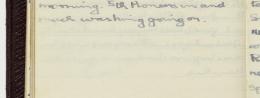 morning. 5th Pioneers in and
much washing going on.